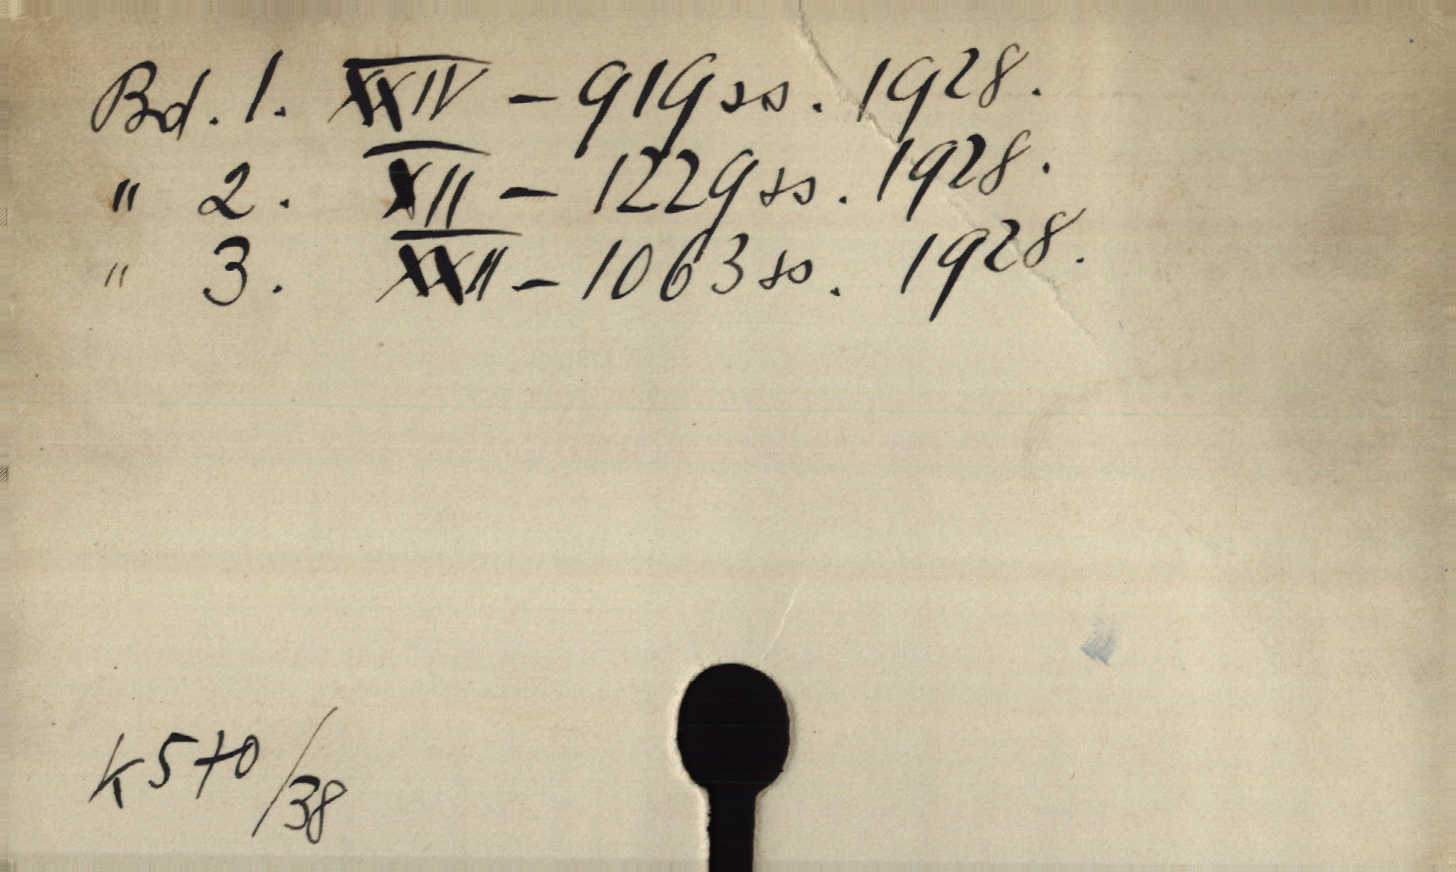 Bd. 1. XXIV - 919 ss. 1928.
" 2. XII - 1229 ss. 1928.
" 3. XXII - 1063 ss. 1928.
K 570/38